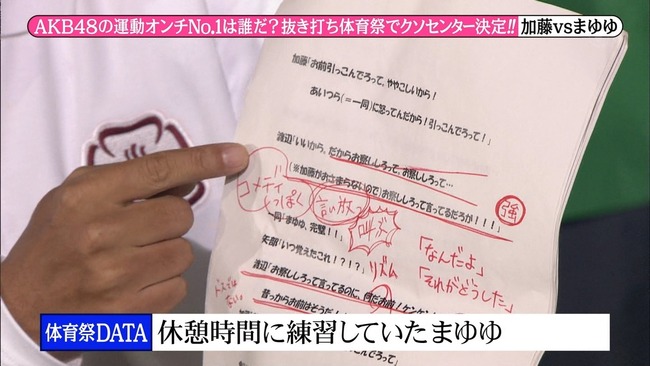 AKB48の運動オンチNo.1は誰だ?抜き打ち体育祭でクソセンター決定!!
加藤vsまゆゆ
加藤「お前引っこんでろって、ややこしいから!
あいつら(=一同)に怒ってんだから!引っこんでろって!」
渡辺「いいから、だからお察ししろって、お察ししろって…
(※加藤がおさまらないので)お察ししろって言ってるだろが!!!」
強
コメディっぽく
言い放つ
叫ぶ
一同「まゆゆ、完璧!!」
「なんだよ」
矢部「いつ覚えたこれ!?!?」
リズム
「それがどうした」
渡辺「お察ししろって言ってるのに、何だお前!
昔っからお前はそうだ!
体育祭DATA
休憩時間に練習していたまゆゆ